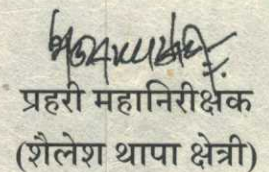 प्रहरी महानिरीक्षक
(शैलेश थापा क्षेत्री)